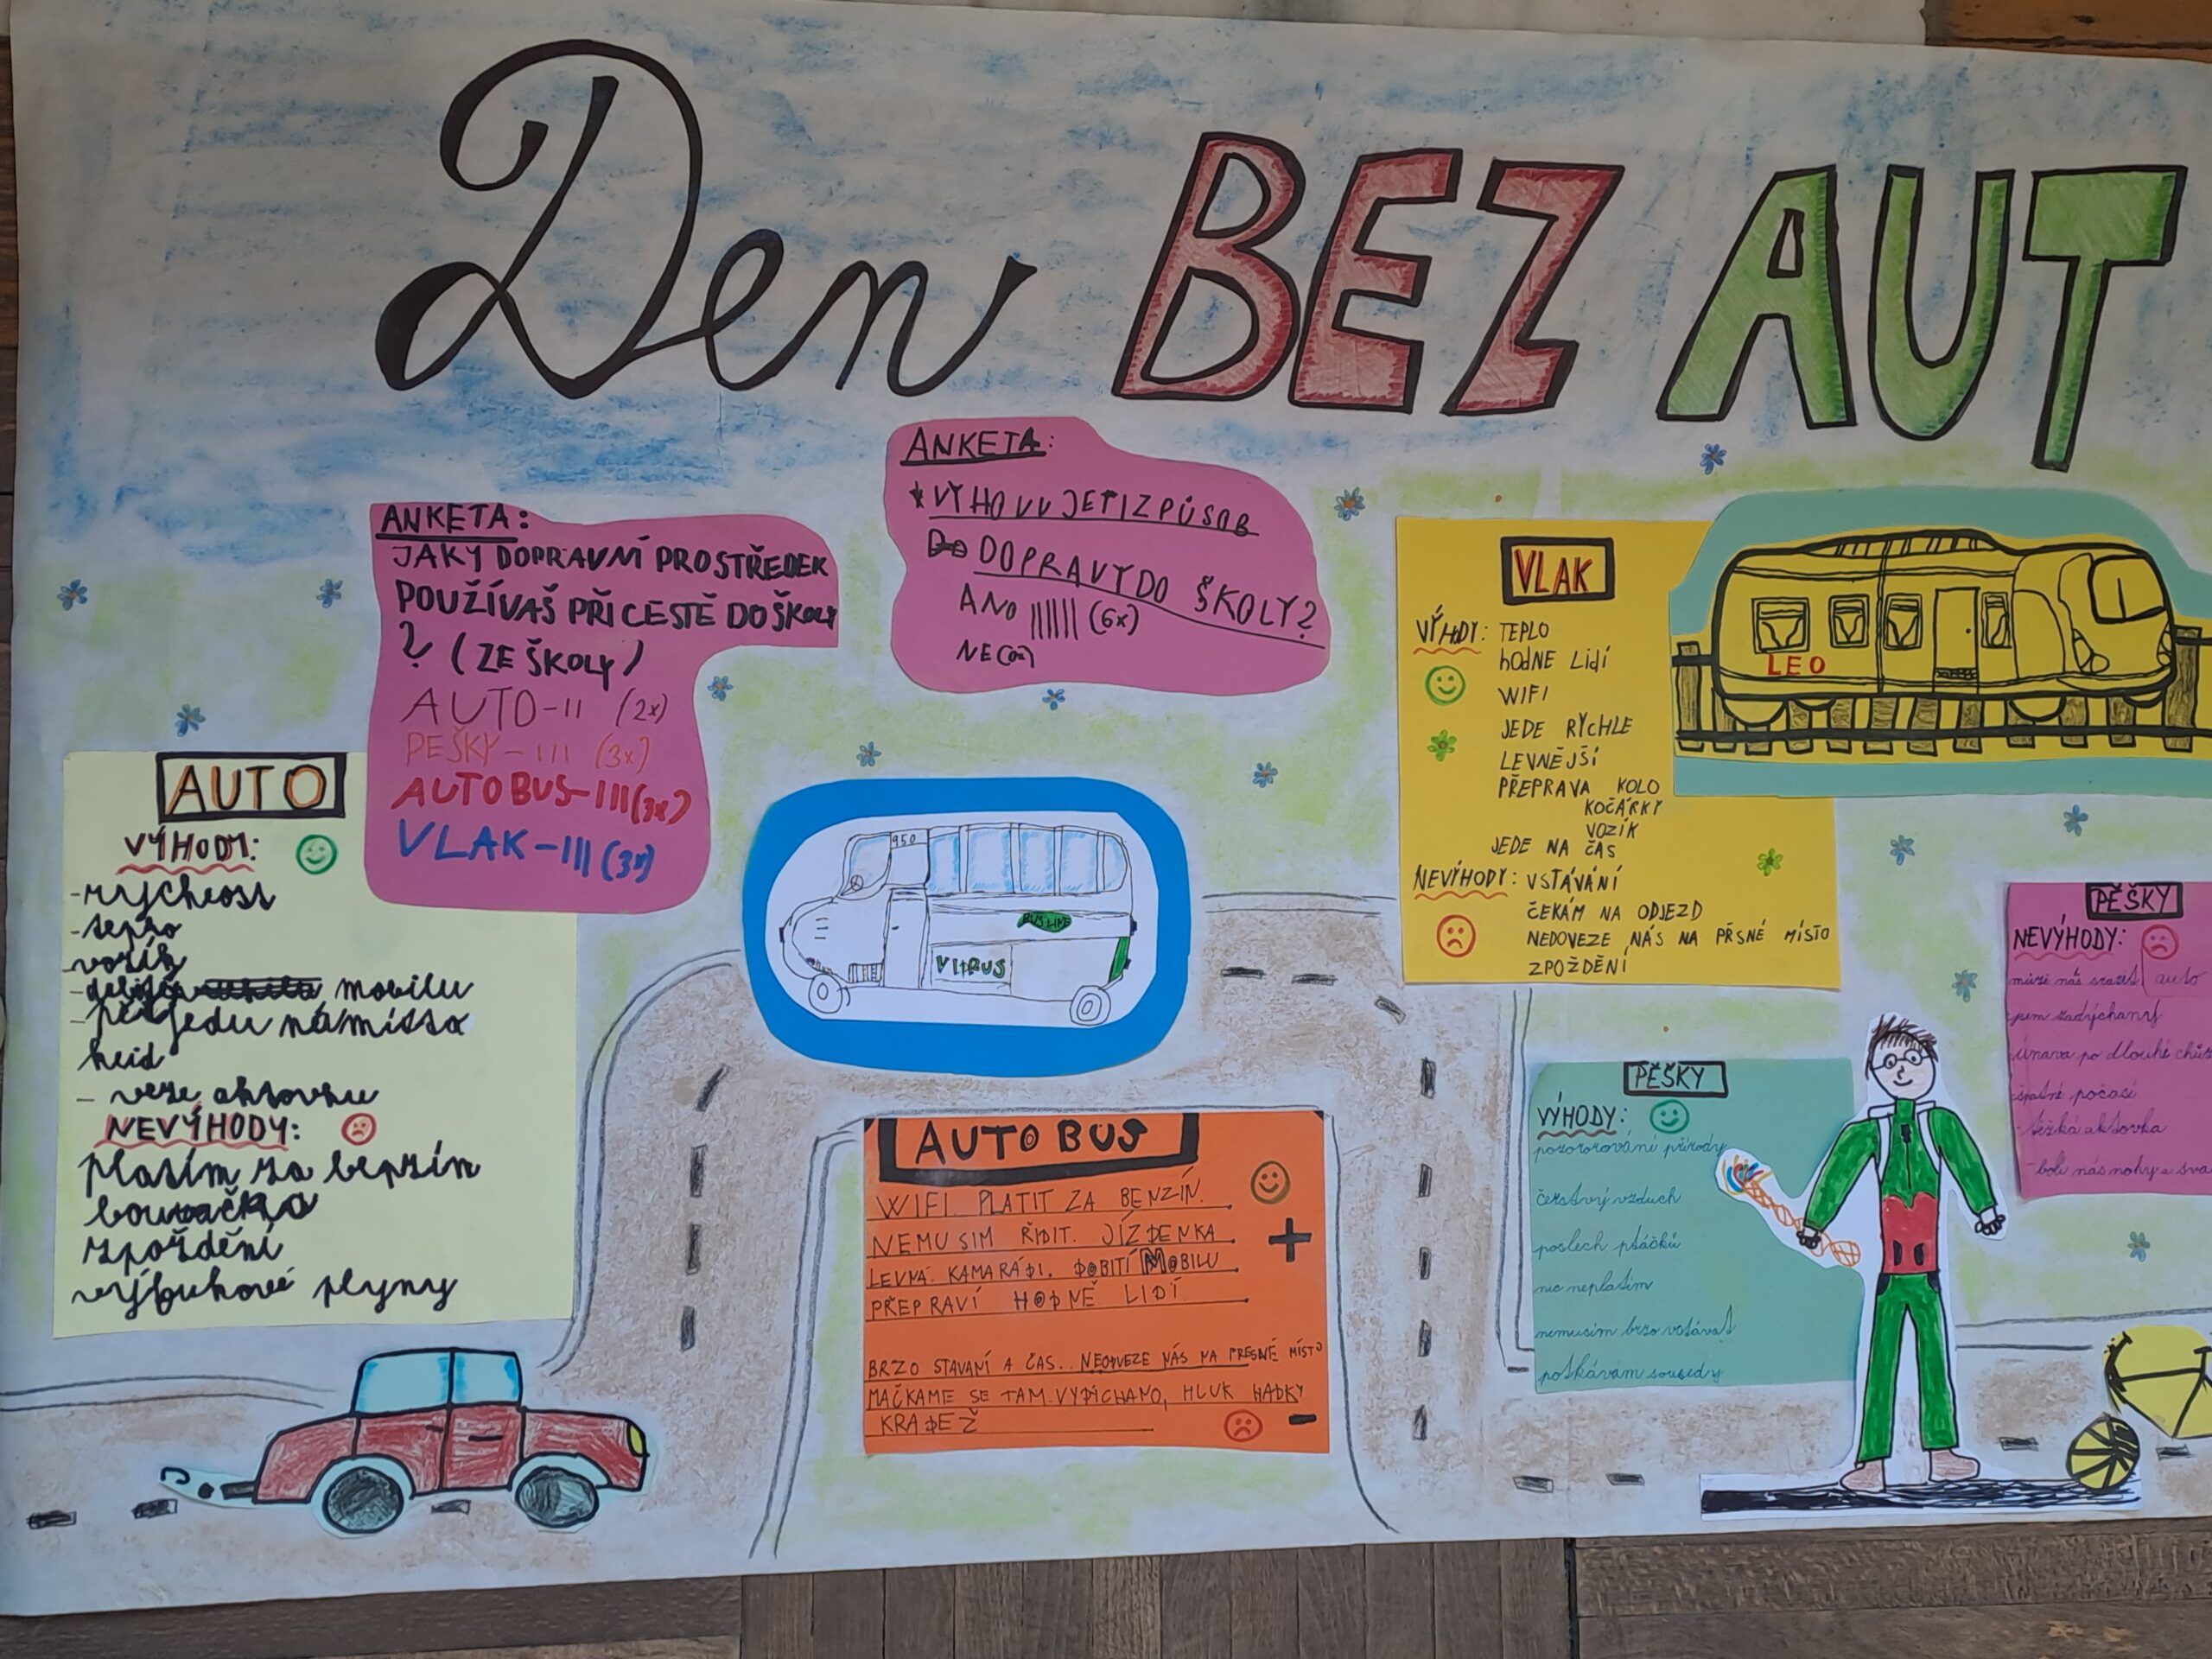 Den BEZ AUT
ANKETA:
JAKÝ DOPRAVNÍ PROSTŘEDEK
POUŽÍVAŠ PŘI CESTĚ DO ŠKOLY
? (ZE ŠKOLY)
AUTO-II (2x)
PEŠKY-III (3x)
AUTOBUS-III (3x)
VLAK-III (3x)
ANKETA:
*VYHOVUJE TI ZPŮSOB
DOPRAVY DO ŠKOLY?
ANO IIIIII (6x)
NE (0x)
AUTO
VÝHODY:
-rychlost
-teplo
-vozík
mobilu
jedu na místo
klid
- veze aktovku
NEVÝHODY:
platím za benzín
bouračka
zpoždění
výfukové plyny
950
BUS LINE
VIRBUS
AUTOBUS
WIFI. PLATIT ZA BENZÍN.
NEMUSIM ŘIDIT. JÍZDENKA
LEVNÁ. KAMARÁDI. DOBITÍ MOBILU
PŘEPRAVÍ HODNĚ LIDÍ
+
BRZO STAVANÍ A ČAS.. NEODVEZE NÁS NA PRESNÉ MÍSTO
MAČKAME SE TAM. VYDÝCHANO, HLUK HADKY
KRADEŽ
-
VLAK
VÝHDY: TEPLO
hODNE LidÍ
WIFI
JEDE RYCHLE
LEVNĚJŠÍ
PŘEPRAVA KOLO
KOČÁRKY
VOZÍK
JEDE NA ČAS
NEVÝHODY: VSTÁVÁNÍ
ČEKÁM NA ODJEZD
NEDOVEZE NÁS NA PŘSNÉ MÍSTO
ZPOŽDĚNÍ
LEO
PĚŠKY
VÝHODY:
pozorování přírody
čerstvý vzduch
poslech ptáčků
nic neplatím
nemusím brzo vstávat
potkávám sousedy
PĚŠKY
NEVÝHODY:
může nás srazit auto
jsem zadýchaný
únava po dlouhé
špatné počasí
-těžká aktovka
-bolí nás nohy a